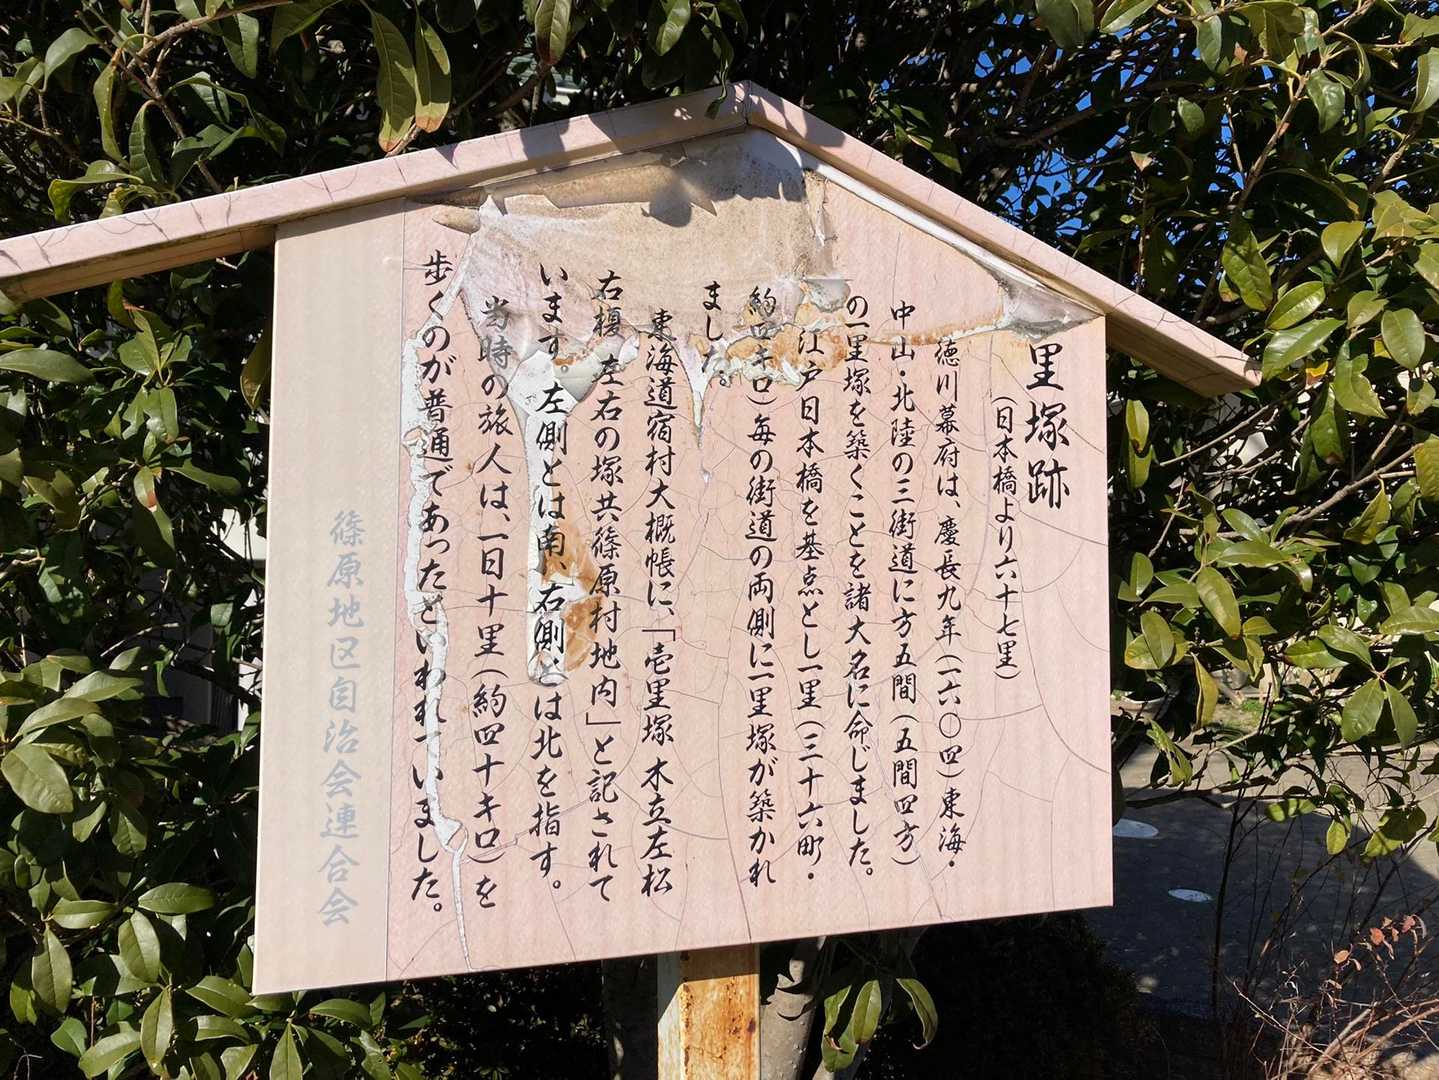 里塚跡
(日本橋より六十七里)
徳川幕府は、慶長九年(一六〇四)東海・
中山・北陸の三街道に方五間(五間四方)
の一里塚を築くことを諸大名に命じました。
江戸日本橋を基点とし一里(三十六町・
約四キロ)毎の街道の両側に一里塚が築かれ
ました。
東海道宿村大概帳に、「壱里塚 木立左松
右榎 左右の塚共篠原村地内」と記されて
います。左側とは南、右側とは北を指す。
当時の旅人は、一日十里(約四十キロ)を
歩くのが普通であったといわれていました。
篠原地区自治会連合会